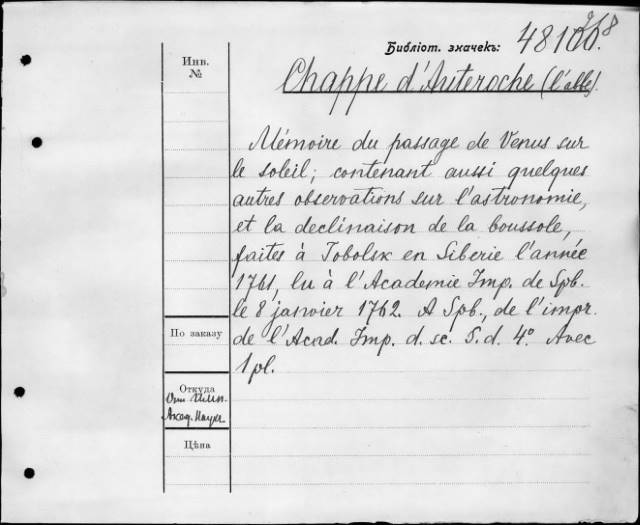 Библіот. значекъ: 48100.
Инв.
№
Chappe d'Auteroche (l'abbé).
Mémoire du passage de Venus sur
le soleil; contenant aussi quelques
autres observations sur l'astronomie,
et la declinaison de la boussole,
faites à Tobolsk en Siberie l'année
1761, lu à l'Academie Imp. de Spb.
le 8 janvier 1762. A Spb., de l'impr.
de l'Acad. Imp. d. sc. S. d. 4°. Avec
1 pl.
По заказу
Откуда
Отъ Имп.
Акад. Наукъ
Цѣна